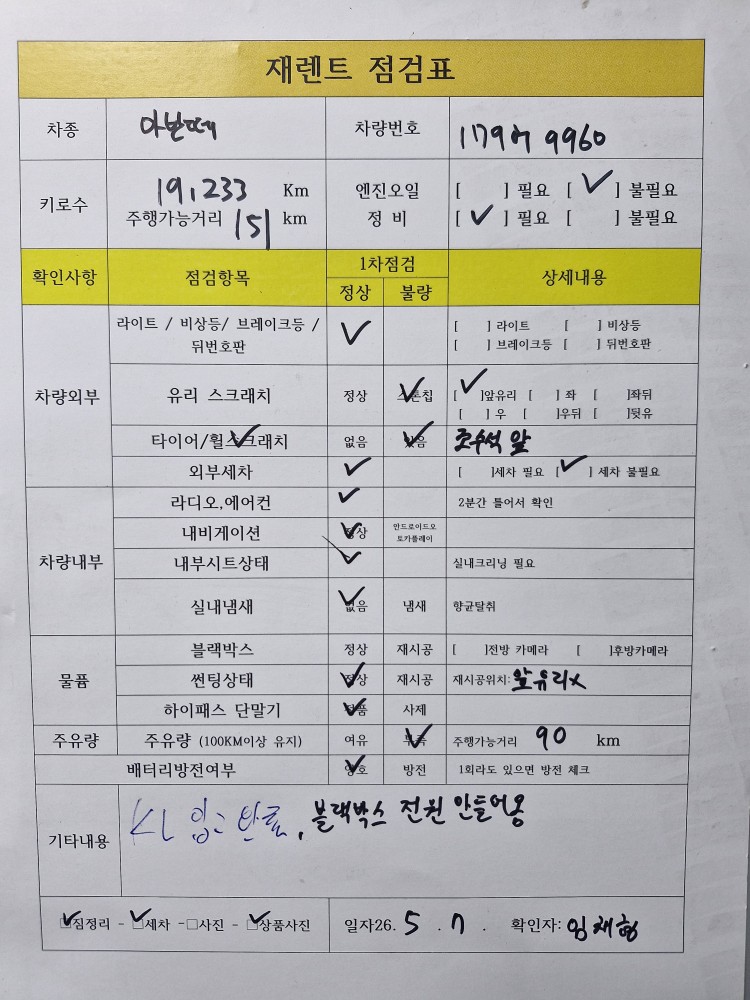 재렌트 점검표
차종 아반떼 차량번호 179어 9960
키로수 19,233 Km 엔진오일 [ ] 필요 [ ✓ ] 불필요
주행가능거리 151 km 정 비 [ ✓ ] 필요 [ ] 불필요
확인사항 점검항목 1차점검 상세내용
정상 불량
차량외부
라이트 / 비상등/ 브레이크등 / ✓ [ ] 라이트 [ ] 비상등
뒤번호판 [ ] 브레이크등 [ ] 뒤번호판
유리 스크래치 정상 ✓ 스톤칩 [ ✓ ]앞유리 [ ] 좌 [ ]좌뒤
[ ] 우 [ ]우뒤 [ ]뒷유
타이어/휠스크래치 ✓ 없음 ✓ 있음 조수석 앞
외부세차 ✓ [ ]세차 필요 [ ✓ ] 세차 불필요
차량내부
라디오,에어컨 ✓ 2분간 틀어서 확인
내비게이션 ✓ 정상 안드로이드오
토카플레이
내부시트상태 ✓ 실내크리닝 필요
실내냄새 ✓ 없음 냄새 향균탈취
물품
블랙박스 정상 재시공 [ ]전방 카메라 [ ]후방카메라
썬팅상태 ✓ 정상 재시공 재시공위치: 앞유리x
하이패스 단말기 ✓ 정품 사제
주유량 주유량 (100KM이상 유지) 여유 ✓ 부족 주행가능거리 90 km
배터리방전여부 ✓ 양호 방전 1회라도 있으면 방전 체크
기타내용 KL 입고 완료, 블랙박스 전원 안들어옴
☑짐정리 - ☑세차 - □사진 - ☑상품사진 일자26. 5 . 7 . 확인자: 임채형